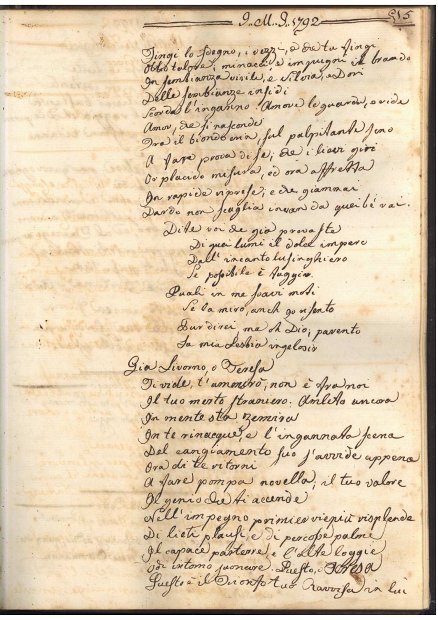 I. M. I. 1792
515
Fingi lo sdegno, i vezzi, e se tu fingi
minacci e impugni il brando
In sembianza virile, e Silvia, e Dori
Dalle sembianze
Scorda l'inganno. Amore le guarda, e ride
Amor, che si nasconde
Ora il biondo crin, sul palpitante seno
A fare prova di se; che i lievi giri
Or placido misura, ed ora affretta
In rapide riprese; e che giammai
Dardo non scaglia invan da quei bé rai.
Dite voi che già provaste
Di quei lumi il dolce impero
Dall'incanto lusinghiero
Se possibile è fuggir
Quali in me soavi moti
Se la miro, anch'io risento
Pur direi, ma oh Dio, pavento
La mia Lesbia ingelosir
Già Livorno, o Teresa
Ti vide, t'ammirò; non è fra noi
Il tuo merto straniero. Amleto ancora
In mente sta Zemira
In te rinacque, e l'ingannata scena
Del cangiamento suo s'avvide appena
Ora di te ritorni
A fare pompa novella, il tuo valore
Il genio che ti accende
Nell'impegno primier viepiù risplende
Di lieti plausi, e di percosse palme
Il capace partere, e l'alte loggie
odi intorno suonare. Questo, o Teresa
Questo è il Trionfo tuo in lui